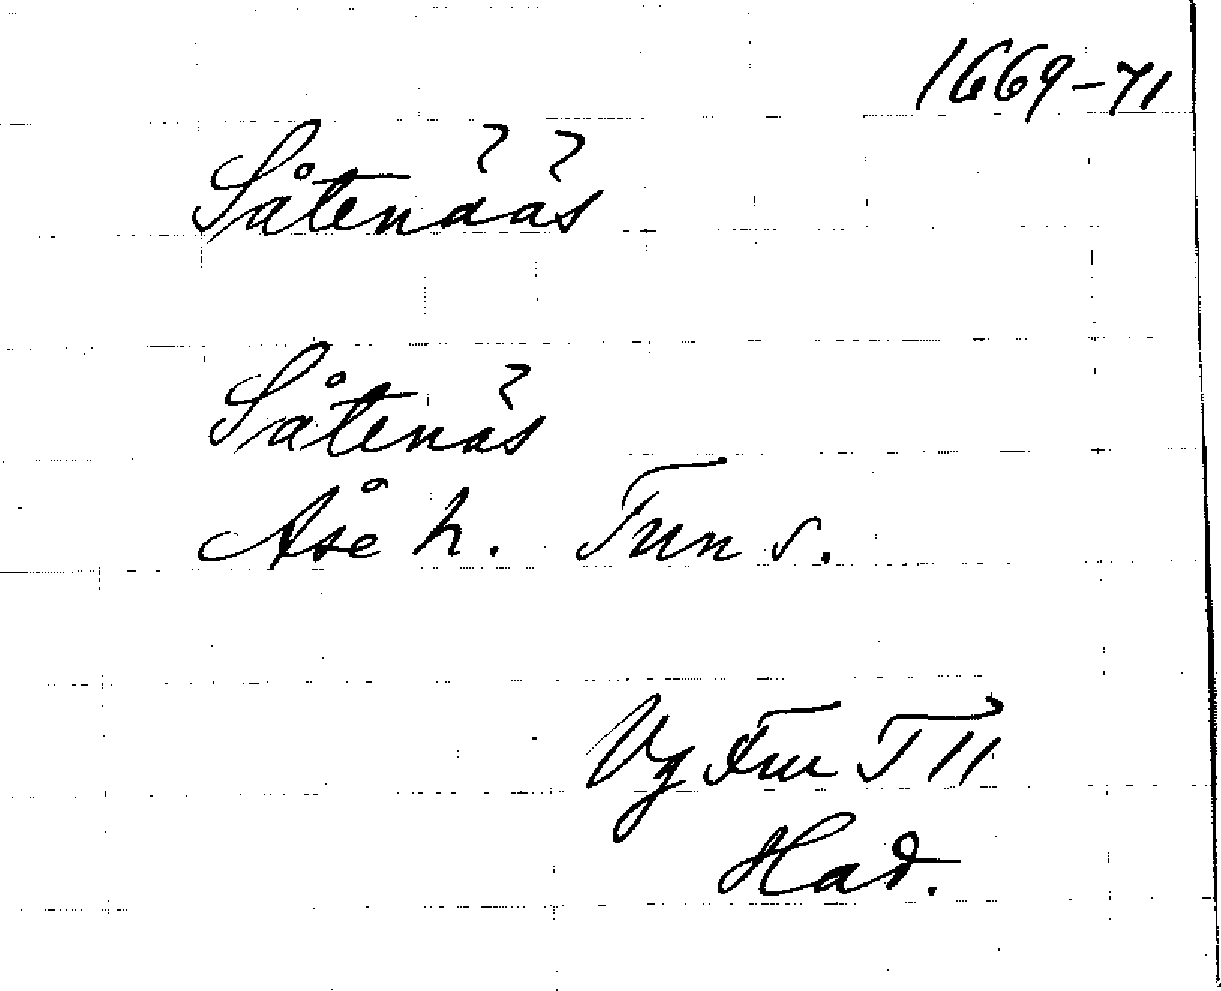 1669-71
Såtenääs
Såtenäs
Åse h. Tun s.
Vg Fm T 11
Had.